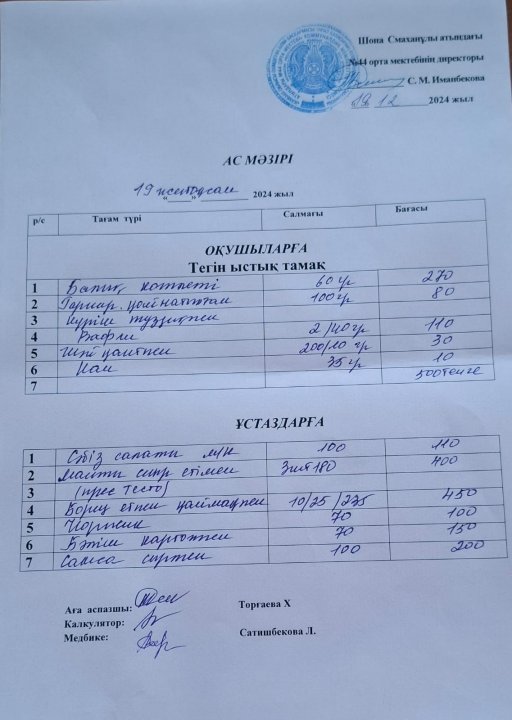 Шона Смаханұлы атындағы
№44 орта мектебінің директоры
С. М. Иманбекова
19. 12 2024 жыл
АС МӘЗІРІ
19 желтоқсан 2024 жыл
р/с Тағам түрі Салмағы Бағасы
ОҚУШЫЛАРҒА
Тегін ыстық тамақ
1 Балық котлеті 60 гр 270
2 Гарнир қайнатылған 100 гр 80
3 күріш тұздықпен
4 Вафли 2/40 гр 110
5 Шәй қантпен 200/10 гр 30
6 Нан 35 гр 10
7 500 теңге
ҰСТАЗДАРҒА
1 Сәбіз салаты 100 110
2 Манты сиыр етімен 3шт 180 400
3 (прес тесто)
4 Борщ етпен қаймақпен 10/25/235 450
5 70 100
6 Бәліш картоппен 70 150
7 Самса сырпен 100 200
Аға аспазшы: Торғаева Х
Калкулятор:
Медбике: Сатишбекова Л.